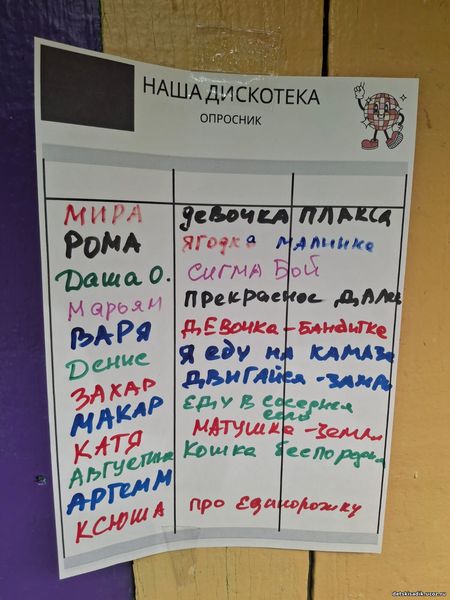 НАША ДИСКОТЕКА
ОПРОСНИК
МИРА девочка ПЛАКСА
РОМА ЯГодка малинка
Даша О. СИГМА БОЙ
Марьям ПРЕКРАСНОЕ ДАЛЕКО
ВАРЯ ДЕВОЧКА-БАНДИТКА
Денис Я ЕДУ НА КАМАЗЕ
ЗАХАР ДВИГАЙСЯ-ЗАМРИ
МАКАР ЕДУ В соседнее
село
КАТЯ МАТУШКА-ЗЕМЛЯ
АВГУСТИНА Кошка беспородная
АРТЕМ М
КСЮША про Единорожку
detskisadik.ucoz.ru